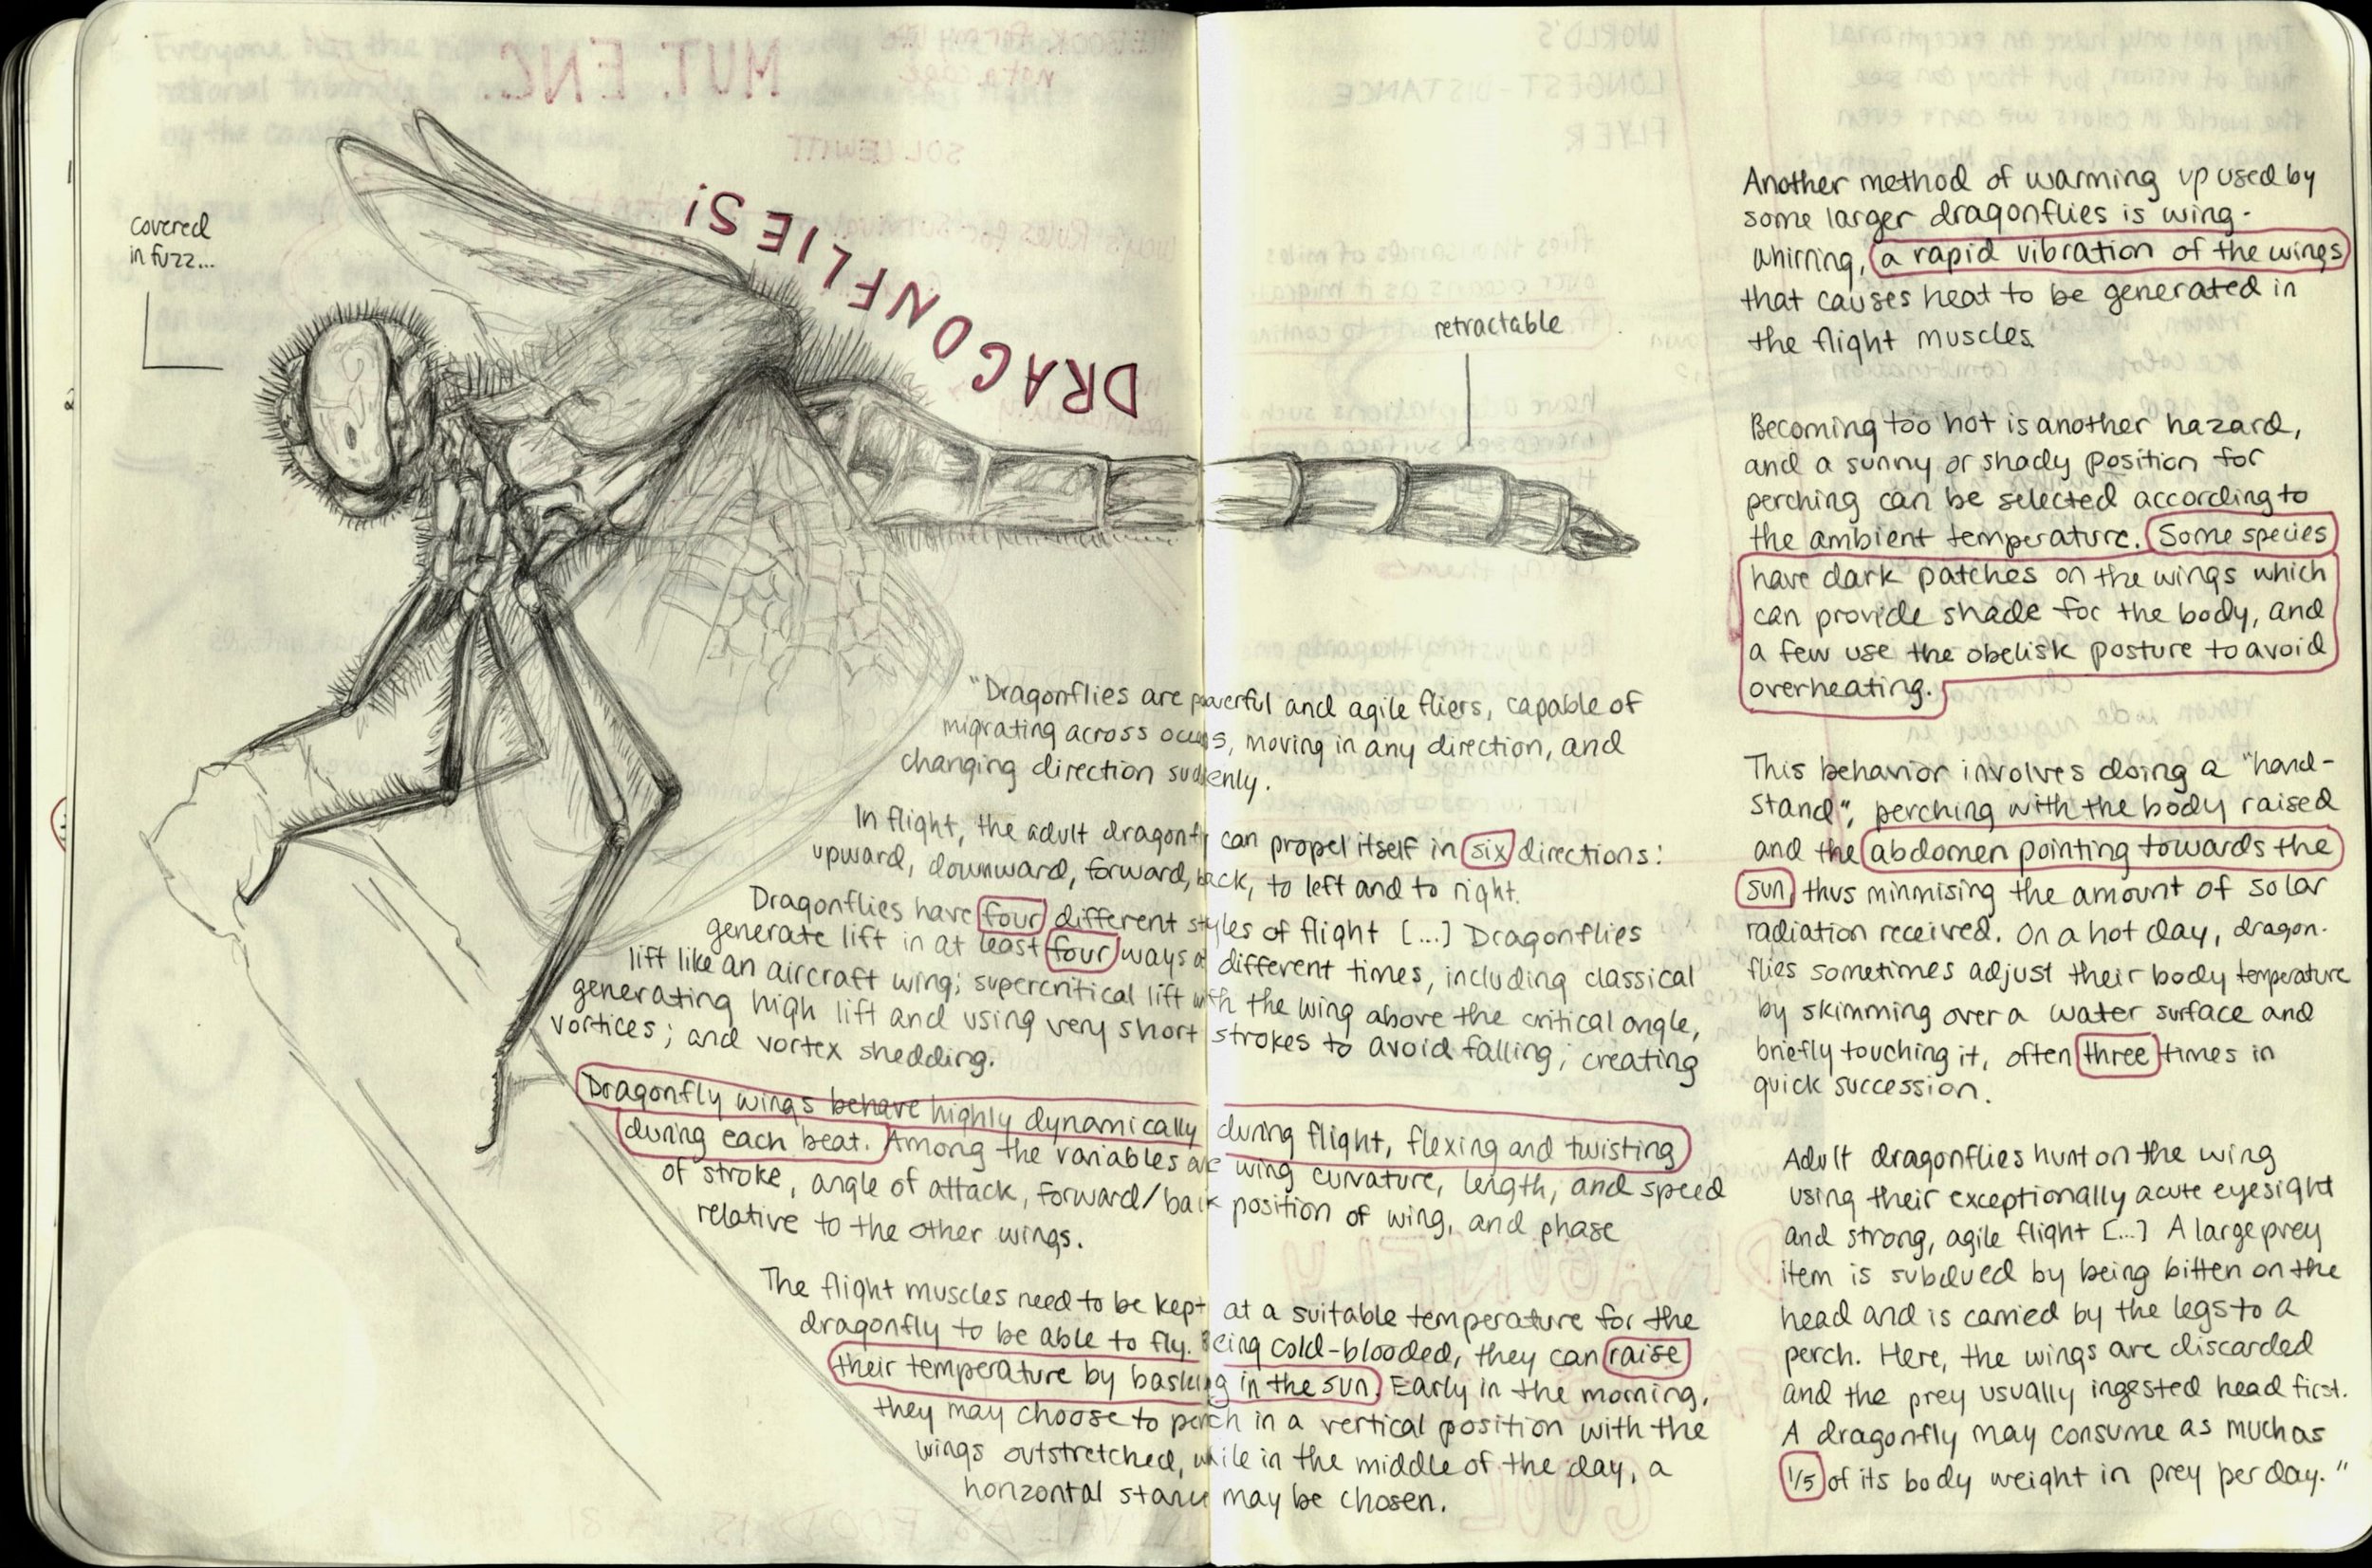 DRAGONFLIES!
covered
in fuzz...
retractable
"Dragonflies are powerful and agile fliers, capable of
migrating across oceans, moving in any direction, and
changing direction suddenly.
In flight, the adult dragonfly can propel itself in six directions:
upward, downward, forward, back, to left and to right.
Dragonflies have four different styles of flight [...] Dragonflies
generate lift in at least four ways at different times, including classical
lift like an aircraft wing; supercritical lift with the wing above the critical angle,
generating high lift and using very short strokes to avoid falling; creating
vortices; and vortex shedding.
Dragonfly wings behave highly dynamically during flight, flexing and twisting
during each beat. Among the variables are wing curvature, length, and speed
of stroke, angle of attack, forward/back position of wing, and phase
relative to the other wings.
The flight muscles need to be kept at a suitable temperature for the
dragonfly to be able to fly. Being cold-blooded, they can raise
their temperature by basking in the sun. Early in the morning,
they may choose to perch in a vertical position with the
wings outstretched, while in the middle of the day, a
horizontal stance may be chosen.
Another method of warming up used by
some larger dragonflies is wing-
whirring, a rapid vibration of the wings
that causes heat to be generated in
the flight muscles.
Becoming too hot is another hazard,
and a sunny or shady position for
perching can be selected according to
the ambient temperature. Some species
have dark patches on the wings which
can provide shade for the body, and
a few use the obelisk posture to avoid
overheating.
This behavior involves doing a "hand-
stand", perching with the body raised
and the abdomen pointing towards the
sun, thus minmising the amount of solar
radiation received. On a hot day, dragon-
flies sometimes adjust their body temperature
by skimming over a water surface and
briefly touching it, often three times in
quick succession.
Adult dragonflies hunt on the wing
using their exceptionally acute eyesight
and strong, agile flight [...] A large prey
item is subdued by being bitten on the
head and is carried by the legs to a
perch. Here, the wings are discarded
and the prey usually ingested head first.
A dragonfly may consume as much as
1/5 of its body weight in prey per day."